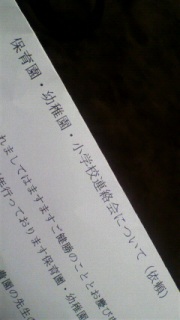 保育園・幼稚園・小学校連絡会について（依頼）
れましてはますますご健勝のこととお慶び
行っております保育園・幼稚園
園の先生